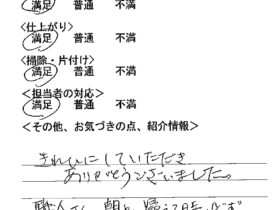 満足 普通 不満
<仕上がり>
満足 普通 不満
<掃除・片付け>
満足 普通 不満
<担当者の対応>
満足 普通 不満
<その他、お気づきの点、紹介情報>
きれいにしていただき
ありがとうございました。
職人さん 朝と 帰る